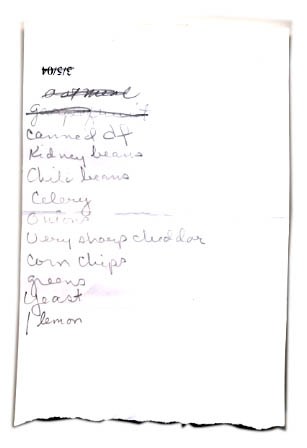 3/5/04
oatmeal
canned df
Kidney beans
Chili beans
Celery
Onions
Very sharp cheddar
corn chips
greens
yeast
1 lemon